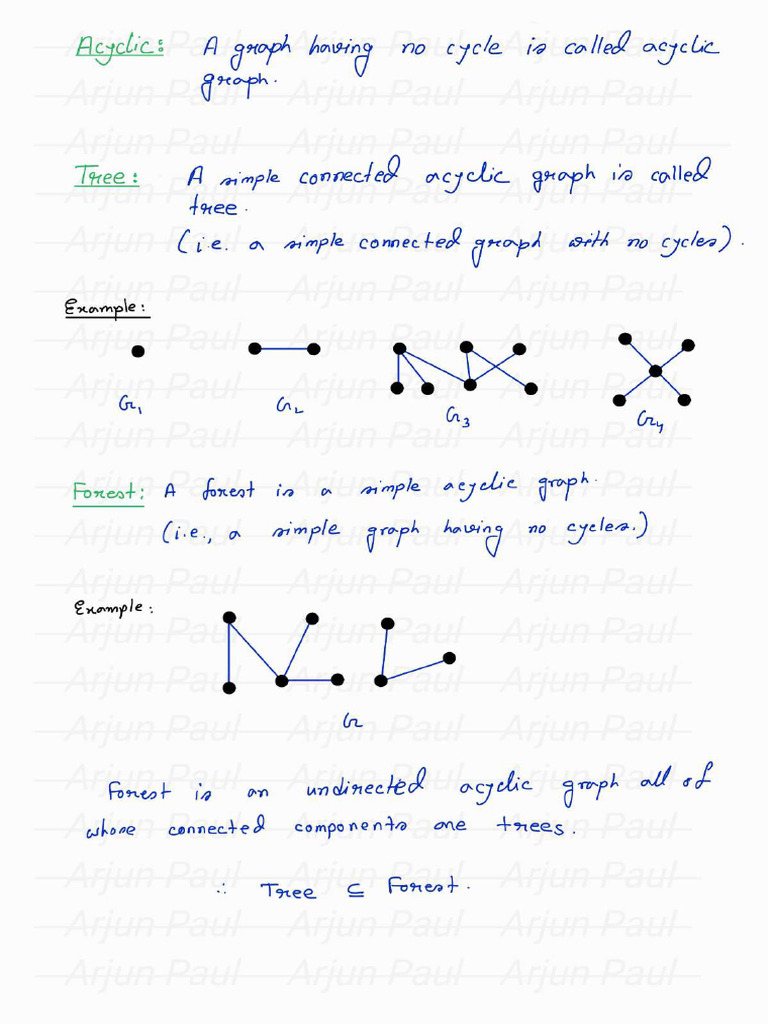 Acyclic: A graph having no cycle is called acyclic
graph.
Tree: A simple connected acyclic graph is called
tree.
(i.e. a simple connected graph with no cycles).
Example:
G1 G2 G3 G4
Forest: A forest is a simple acyclic graph.
(i.e., a simple graph having no cycles.)
Example:
G
Forest is an undirected acyclic graph all of
whose connected components are trees.
∴ Tree ⊆ Forest.
Arjun Paul